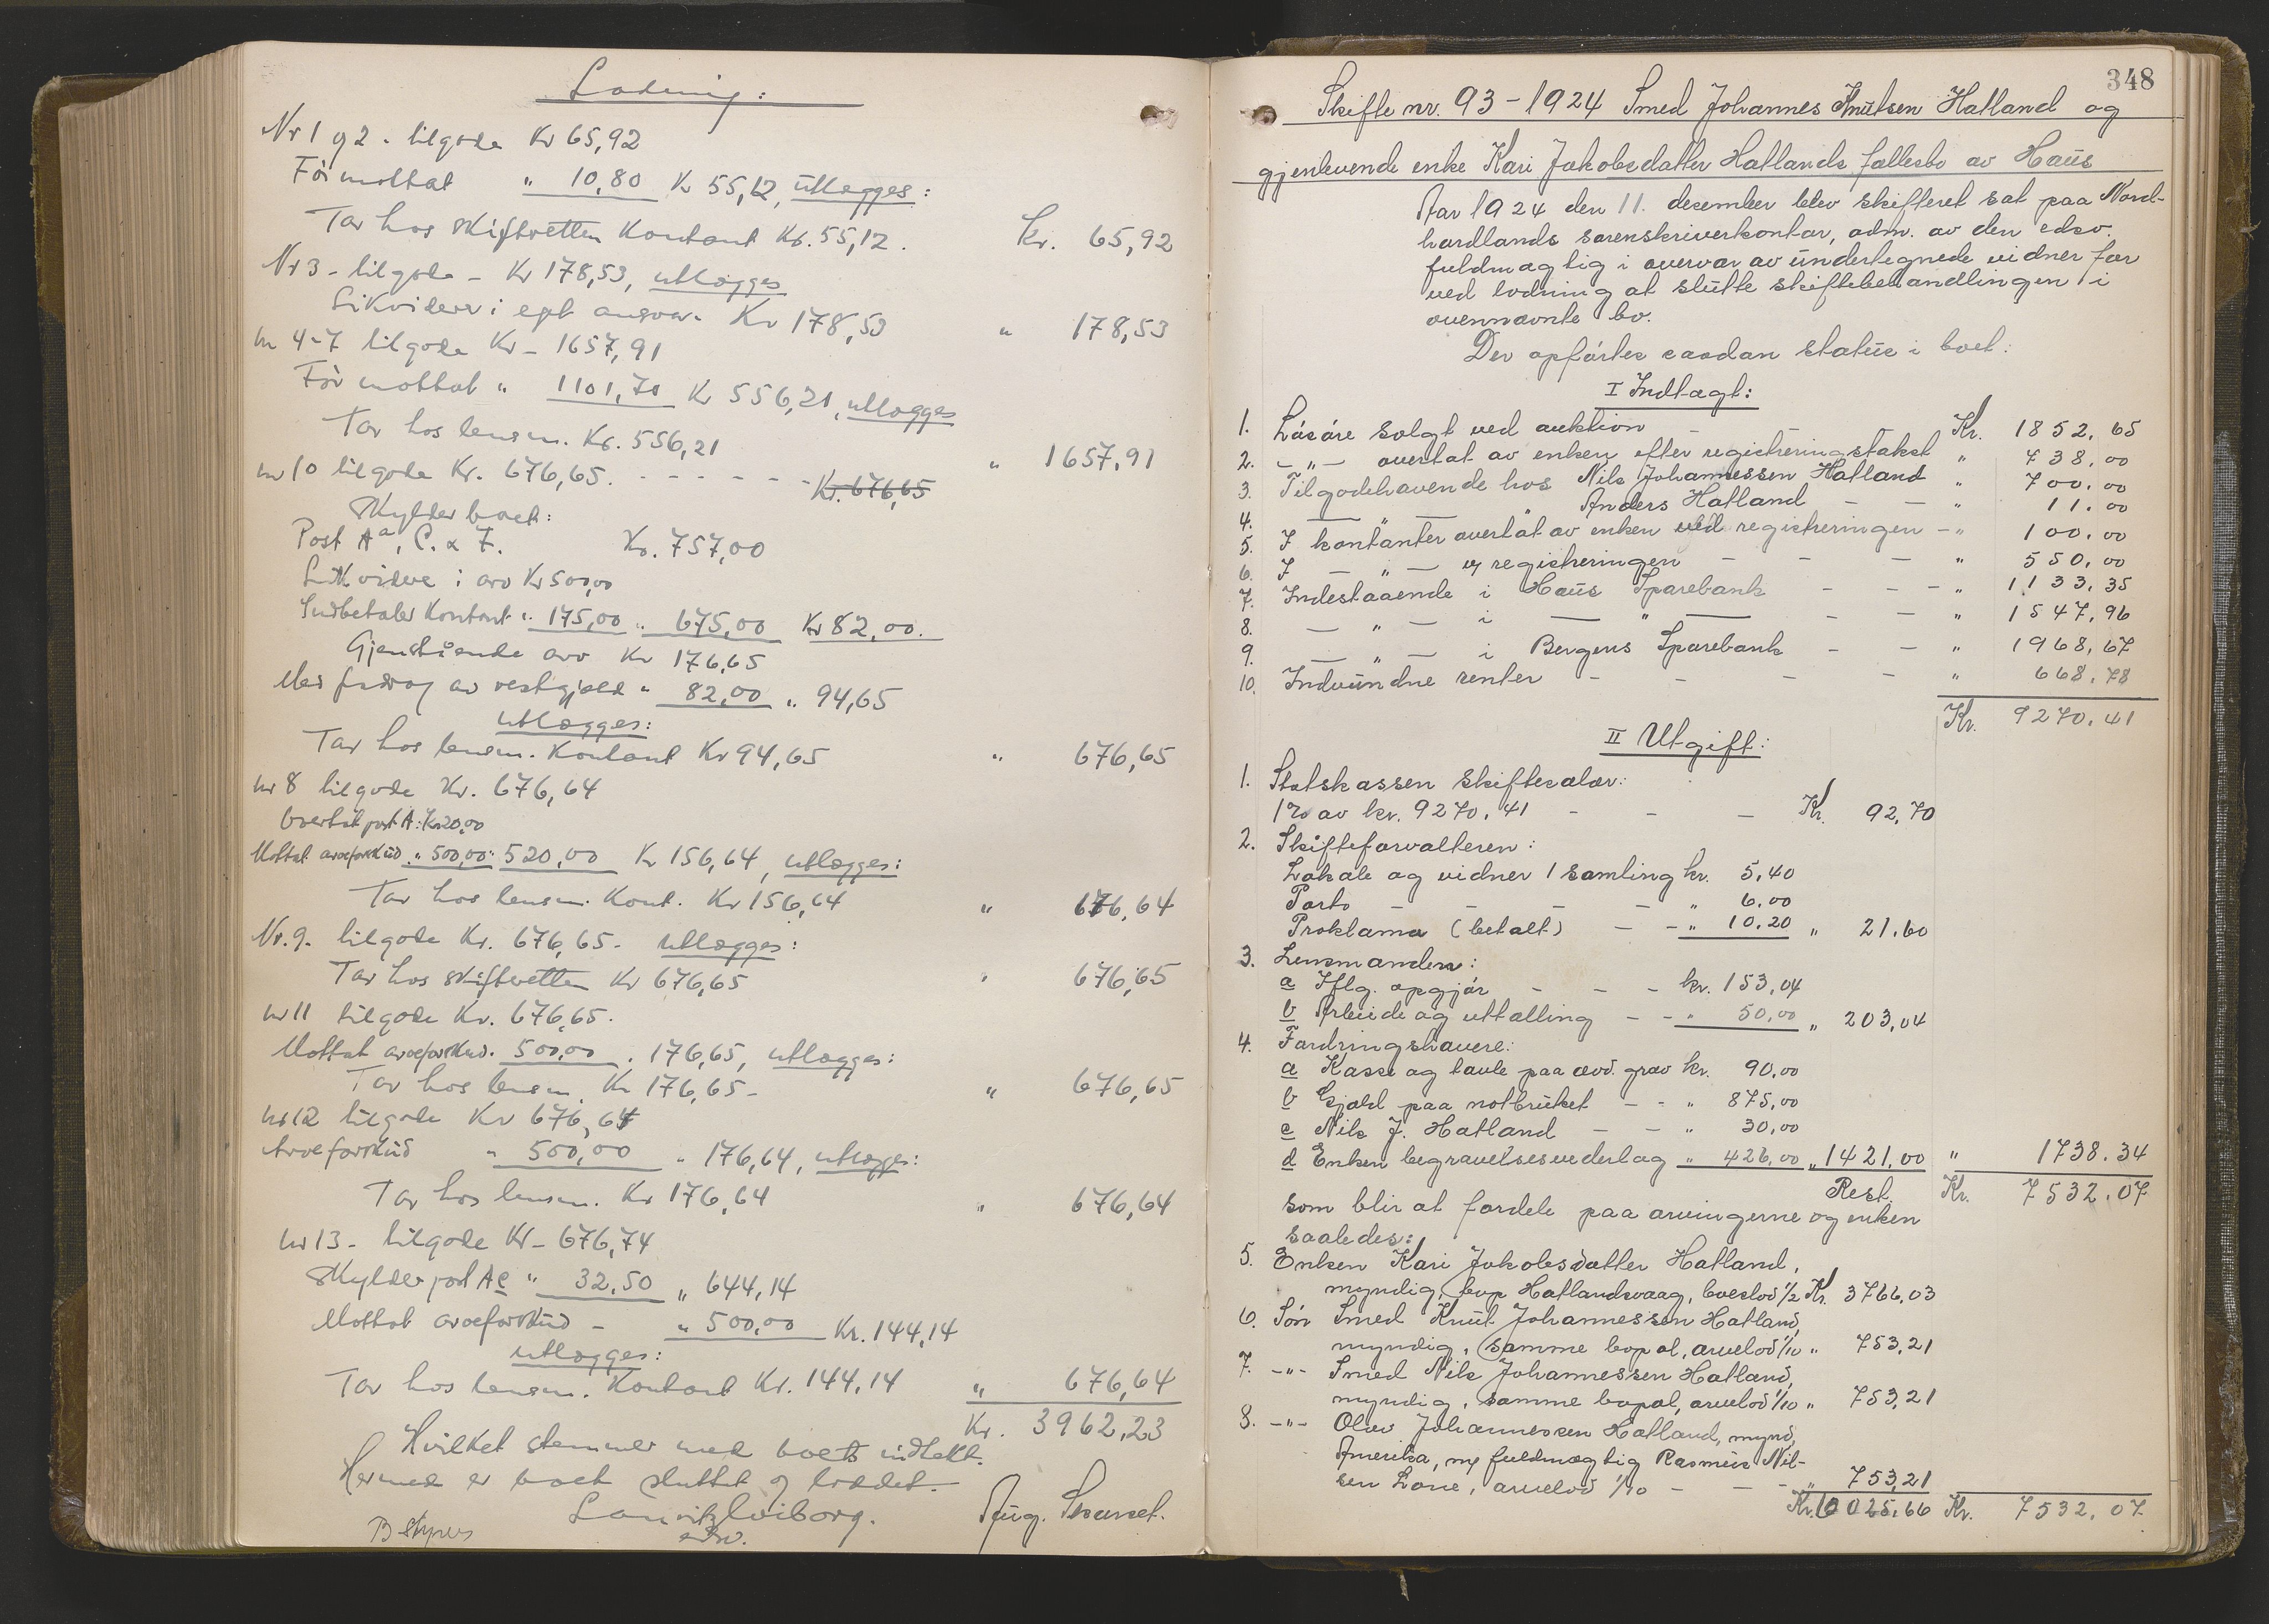 Lodning:
Nr 1 og 2 - tilgode Kr 65,92
Før mottat " 10,80 Kr 55,12, utlægges:
Tar hos skifteretten Kontant Kr. 55,12. Kr. 65,92
Nr 3 - tilgode - Kr 178,53, utlægges
Likviderer i eget ansvar Kr 178,53 " 178,53
nr 4-7 tilgode Kr - 1657,91
Før mottat " 1101,70 Kr 556,21, utlægges
Tar hos lensm. Kr. 556,21 " 1657,91
nr 10 tilgode Kr. 676,65. - - - - - - Kr. 676,65
Skylder boet:
Post Aa, C. & F. Kr. 757,00
Likvidere i arv Kr 500,00
Indbetaler Kontant " 175,00 " 675,00 Kr 82,00.
Gjenstående arv Kr 176,65
Med fradrag av restgjæld " 82,00 " 94,65
utlægges:
Tar hos lensm. Kontant Kr 94,65 " 676,65
nr 8 tilgode Kr. 676,64
Overtat post A: Kr 20,00
Mottat arveforskud " 500,00 " 520,00 Kr 156,64, utlægges:
Tar hos lensm. Kont. Kr 156,64 " 676,64
Nr. 9. tilgode Kr. 676,65 - utlægges:
Tar hos skifteretten Kr 676,65 " 676,65
nr 11 tilgode Kr. 676,65.
Mottat arveforskud. 500,00 " 176,65, utlægges:
Tar hos lensm. Kr 176,65 - " 676,65
nr 12 tilgode Kr 676,64
Arveforskud " 500,00 " 176,64, utlægges:
Tar hos lensm. Kr 176,64 " 676,64
nr 13 - tilgode Kr - 676,74
Skylder post Ac " 32,50 " 644,14
Mottat arveforskud - " 500,00 Kr. 144,14
utlægges:
Tar hos lensm. Kontant Kr. 144,14 " 676,64
Kr. 3962,23
Hvilket stemmer med boets indtekt.
Hermed er boet sluttet og loddet.
Lauritz Wiborg. Aug. Skarset.
B Styve edsv.
348
Skifte nr. 93 - 1924 Smed Johannes Knutsen Hatland og
gjenlevende enke Kari Jakobsdatter Hatlands fællesbo av Haus
Aar 1924 den 11. desember blev skifteret sat paa Nord-
hordlands sorenskriverkontor, adm. av den edsv.
fuldmægtig i overvær av undertegnede vidner for
ved lodning at slutte skiftebehandlingen i
ovennævnte bo.
Der opførtes saadan status i boet:
I Indtægt:
1. Løsøre solgt ved auktion - Kr. 1852,65
2. - " - overtat av enken efter registreringstakst " 738,00
3. Tilgodehavende hos Nils Johannessen Hatland " 700,00
4. — " — Anders Hatland - - " 11,00
5. I kontanter overtat av enken ved registreringen - " 100,00
6. I — " — ved registreringen - - - " 550,00
7. Indestaaende i Haus Sparebank - - - " 1133,35
8. — " — i — " — - - " 1547,96
9. — " — i Bergens Sparebank - - " 1968,67
10. Indvundne renter - - - - " 668,78
Kr. 9270.41
II Utgift:
1. Statskassen skiftesalær:
1% av kr. 9270,41 - - - Kr. 92,70
2. Skifteforvalteren:
Lokale og vidner 1 samling kr. 5,40
Porto - - - - " 6.00
Proklama (betalt) - - " 10.20 " 21.60
3. Lensmanden:
a Iflg. opgjør - - - kr. 153,04
b Arbeide og uttælling - - " 50,00 " 203,04
4. Fordringshavere:
a Kasse og tavle paa avd. grav kr. 90,00
b Gjæld paa notbruket - - " 875,00
c Nils J. Hatland - - " 30,00
d Enken begravelsesvederlag " 426,00 " 1421,00 " 1738.34
Rest. Kr. 7532.07
som blir at fordele paa arvingerne og enken
saaledes:
5. Enken Kari Jakobsdatter Hatland,
myndig, bop Hatlandsvaag, boeslod 1/2 Kr. 3766,03
6. Søn Smed Knut Johannessen Hatland,
myndig, samme bopæl, arvelod 1/10 " 753,21
7. - " - Smed Nils Johannessen Hatland,
myndig, samme bopæl, arvelod 1/10 " 753,21
8. - " - Olav Johannessen Hatland, mynd,
Amerika, ved fuldmægtig Rasmus Nil-
sen Lone, arvelod 1/10 - - - " 753,21
Kr. 6025,66 Kr. 7532.07